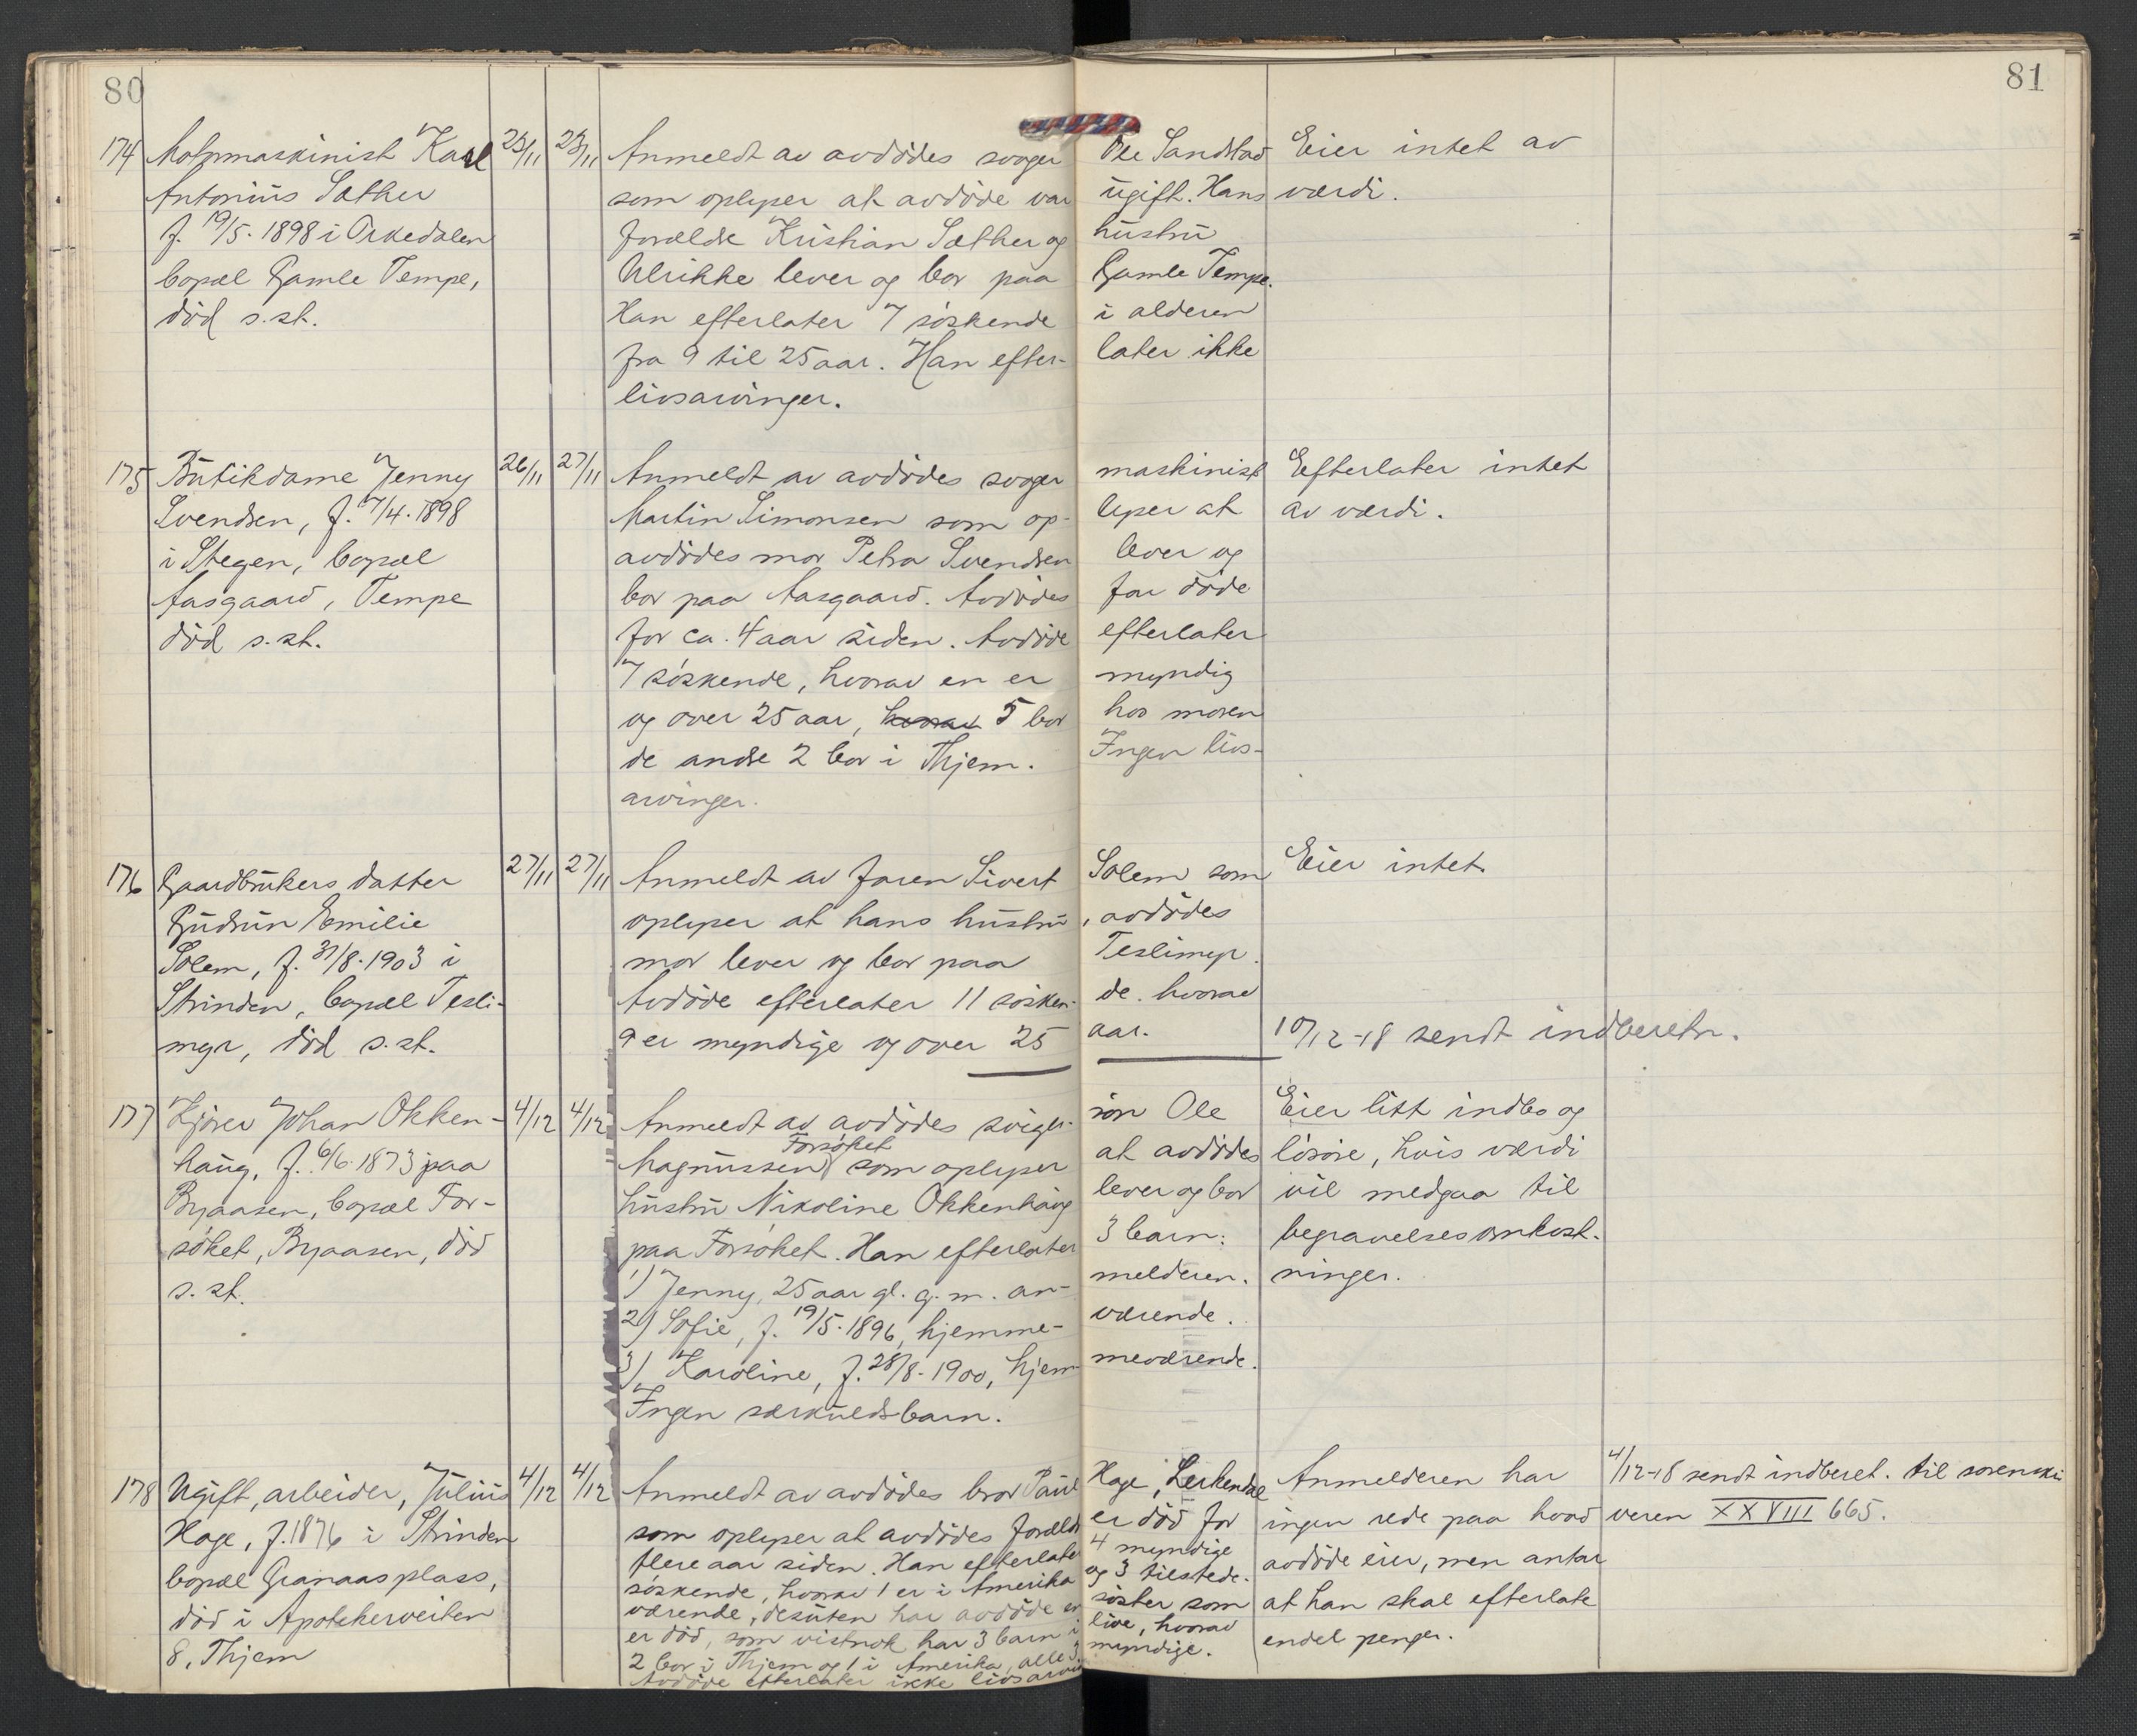 80
81
174 Motormaskinist Karl 23/11 23/11 Anmeldt av avdödes svoger Ole Sandstad Eier intet av
Antonius Sæther som oplyser at avdöde var ugift. Hans værdi.
f. 19/5. 1898 i Orkedalen forældre Kristian Sæther og hustru
bopæl Gamle Tempe, Ulrikke lever og bor paa Gamle Tempe.
död s.st. Han efterlater 7 söskende i alderen
fra 9 til 25 aar. Han efter- later ikke
livsarvinger.
175 Butikdame Jenny 26/11 27/11 Anmeldt av avdödes svoger maskinist Efterlater intet
Svendsen, f. 7/4. 1898 Martin Simonsen som op- lyser at av værdi.
i Stegen, bopæl avdödes mor Petra Svendsen lever og
Aasgaard, Tempe bor paa Aasgaard. Avdödes far döde
död s.st. for ca. 4 aar siden. Avdöde efterlater
7 söskende, hvorav en er myndig
og over 25 aar, hvorav 5 bor hos moren
de andre 2 bor i Thjem. Ingen livs-
arvinger.
176 Gaardbrukers datter 27/11 27/11 Anmeldt av faren Sivert Solem som Eier intet.
Gudrun Emilie oplyser at hans hustru, avdödes
Solem, f. 31/8. 1903 i mor lever og bor paa Teslimyr.
Strinden, bopæl Tesli- Avdöde efterlater 11 sösken- de. hvorav
myr, död s.st. 9 er myndige og over 25 aar. 10/12-18 sendt indberetn.
177 Kjörer Johan Okken- 4/12 4/12 Anmeldt av avdödes sviger- sön Ole Eier litt indbo og
haug, f. 6/6. 1873 paa Magnussen Forsöket som oplyser at avdödes lösöre, hvis værdi
Byaasen, bopæl For- hustru Nikoline Okkenhaug lever og bor vil medgaa til
söket, Byaasen, död paa Forsöket. Han efterlater 3 barn: begravelsesomkost-
s.st. 1) Jenny, 25 aar gl. g. m. an- melderen. ninger.
2) Sofie, f. 19/5. 1896, hjemme- værende.
3) Karoline, f. 28/8. 1900, hjem- meværende.
Ingen særkuldsbarn.
178 Ugift, arbeider, Julius 4/12 4/12 Anmeldt av avdödes bror Paul Hage, Lerkendal Anmelderen har 4/12-18 sendt indberet. til sorenskri
Hage, f. 1876 i Strinden som oplyser at avdödes forældre er död for ingen rede paa hvad veren XXVIII 665.
bopæl Granaasplass, flere aar siden. Han efterlater 4 myndige avdöde eier, men antar
död i Apotekerveiten söskende, hvorav 1 er i Amerika og 3 tilstede- at han skal efterlate
8, Thjem værende, desuten har avdöde en söster som endel penger.
er död, som vistnok har 3 barn i live, hvorav
2 bor i Thjem og 1 i Amerika, alle 3 myndige.
Avdöde efterlater ikke livsarvin